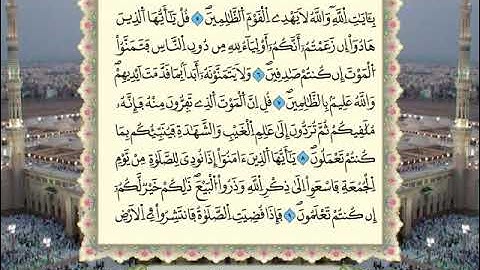 بِـَٔايَٰتِ اِ۬للَّهِۖ وَاللَّهُ لَا يَهْدِے اِ۬لْقَوْمَ اَ۬لظَّٰلِمِينَۖ ٥ قُلْ يَٰٓأَيُّهَا اَ۬لذِينَ
هَادُوٓاْ إِن زَعَمْتُمُۥٓ أَنَّكُمُۥٓ أَوْلِيَآءُ لِلهِ مِن دُونِ اِ۬لنَّاسِ فَتَمَنَّوُاْ
اُ۬لْمَوْتَ إِن كُنتُمْ صَٰدِقِينَۖ ٦ وَلَا يَتَمَنَّوْنَهُۥٓ أَبَداَۢ بِمَا قَدَّمَتَ اَيْدِيهِمْۖ
وَاللَّهُ عَلِيمُۢ بِالظَّٰلِمِينَۖ ٧ قُلِ اِنَّ اَ۬لْمَوْتَ اَ۬لذِے تَفِرُّونَ مِنْهُ فَإِنَّهُۥ
مُلَٰقِيكُمْ ثُمَّ تُرَدُّونَ إِلَىٰ عَٰلِمِ اِ۬لْغَيْبِ وَالشَّهَٰدَةِ فَيُنَبِّئُكُم بِمَا
كُنتُمْ تَعْمَلُونَۖ ٨ يَٰٓأَيُّهَا اَ۬لذِينَ ءَامَنُوٓاْ إِذَا نُودِيَ لِلصَّلَوٰةِ مِنْ يَّوْمِ
اِ۬لْجُمُعَةِ فَاسْعَوِاْ اِلَىٰ ذِكْرِ اِ۬للَّهِ وَذَرُواْ اُ۬لْبَيْعَۖ ذَٰلِكُمْ خَيْرٌ لَّكُمُۥٓ
إِن كُنتُمْ تَعْلَمُونَۖ ٩ فَإِذَا قُضِيَتِ اِ۬لصَّلَوٰةُ فَانتَشِرُواْ فِے اِ۬لَارْضِ